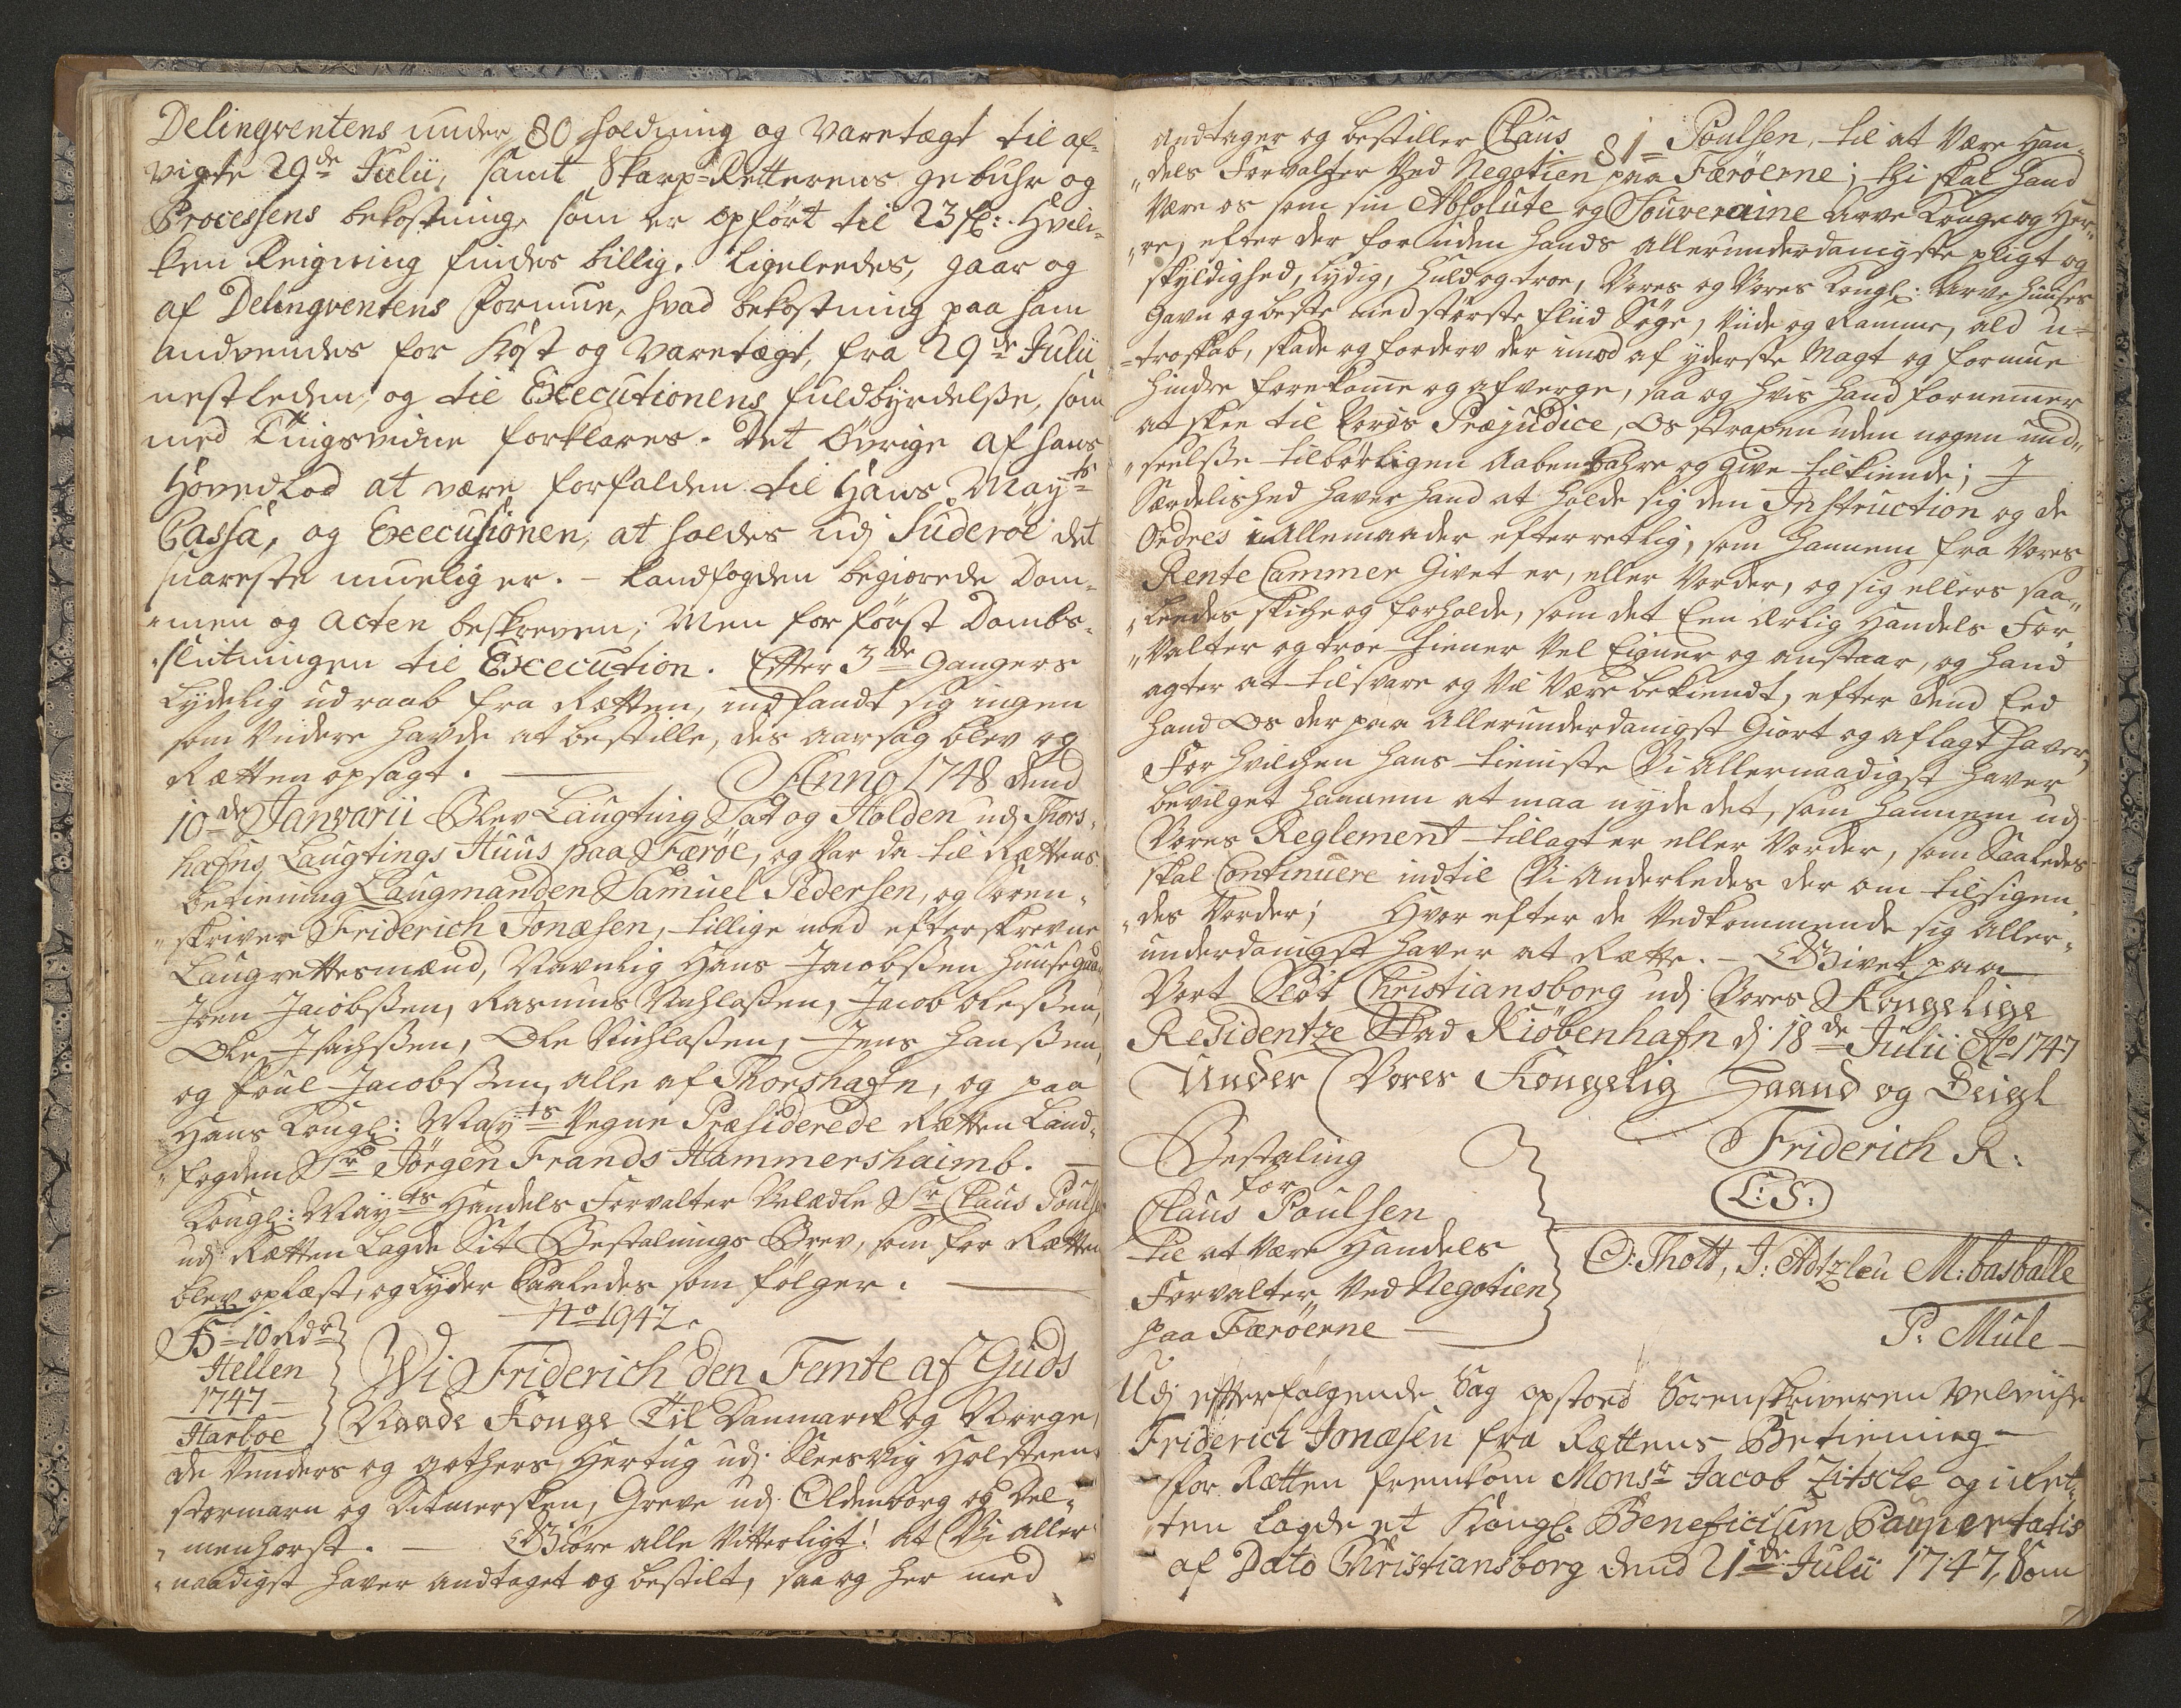 80
Delinqventens under holdning og Varetægt til af-
vigte 29de Julii, samt Skarp-Retterens gebuhr og
Processens bekostning, som er opført til 23 fl: Hvil-
ken Reigning findes billig. Ligeleedes, gaar og
af Delinqventens formue, hvad bekostning paa ham
andvendes for Kost og Varetægt, fra 29de Julii
nestleden, og til Executionens fuldbyrdelsse, som
med Tingsvidne forklares. Det Øvrige af hans
Hoved Lod at være forfalden til Hans Mayts
Cassa, og Executionen, at holdes udj Suderöe det
snareste mueligt er. - Landfogden begierede Dom-
men og Acten beskreven; Men for först Dombs-
slutningen til Execution. Efter 3de Gangers
Lydelig udraab fra Retten, indfandt sig ingen
som Videre havde at bestille, des aarsag blev og
Retten opsagt. — Anno 1748 dend
10de Janvarii Blev Laugting Sat og Holden udj Thors-
hafns Laugtings Huus paa Færöe, og Var da til Rettens
betiening Laugmanden Samuel Pedersen, og Soren-
skriver Friderich Jonæsen, tillige med efterskrevne
Laugrettesmænd, Navnlig Hans Jacobssen Huusegaard
Joen Jacobssen, Rasmus Nichlassen, Jacob Olessen,
Ole Isachssen, Ole Nichlassen, Jens Hanssen,
og Poul Jacobssen, alle af Thorshafn, og paa
Hans Kongl: Mayts Vegne Præsiderede Retten Land-
fogden Sr Jörgen Frands Hammershaimb. —
Kongl: Mayts Handels Forvalter Velædle Sr Claus Pouls
udj Retten Lagde Sit Bestalnings Brev, som for Retten
blev oplæst, og lyder Saaledes som fölger. —
No 1947.
10 Rdr
Hellen
1747
Harboe
Wi Friderich den Femte af Guds
Naade Konge Til Danmarck og Norge,
de Venders og Gothers, Hertug udj Slesvig Holsteen
Stormarn og Ditmersken, Greve udj Oldenborg og Del-
menhorst. — Giöre alle Vitterligt! At Vi Aller-
naadigst haver andtaget og bestilt, saa og her med
81
Andtager og bestiller Claus Poulsen, til at Være Han-
dels Forvalter Ved Negotien paa Færöerne; thi skal Hand
Være os som sin Absolute og Souveraine Arve Konge og Her-
re, efter der foruden Hands Allerunderdanigste pligt og
skyldighed, Lydig, Huld og troe, Vores og Vores Kongl: Arve Huuses
Gavn og beste med störste Fliid Söge, Viide og Ramme, ald u-
troskab, skade og forderv der imod af yderste Magt og formue
hindre forekome og afverge, saa og hvis Hand fornemer
at skee til Vores Præjudice, Os straxen uden nogen und-
seelsse tilbörligen Aabenbahre og Give tilkiende; I
Særdelished haver Hand at holde sig den Instruction og de
Ordres i Allemaader efterretlig, som Hannem fra Vores
Rente Cammer Givet er, eller Vorder, og sig ellers saa-
ledes skiche og forholde, som det Een Ærlig Handels For-
valter og troe tiener Vel Eigner og anstaar, og Hand
agter at tilsvare og Vil Være bekiendt, efter dend Eed
Hand Os der paa Allerunderdanigst Giort og aflagt haver,
For hvilchen Hans tieniste Vi Allernaadigst haver
bevilget Hannem at maa nyde det, som Hannem udj
Vores Reglement tillagt er eller Vorder, som Saaledes
skal Continuere indtil Vi Anderledes der om tilsigen-
des Vorder; Hvor efter de Vedkommende sig Aller-
underdanigst haver at Rette. - Givet paa
Vort Slot Christiansborg udj Vores Kongelige
Residentze Stad Kiöbenhafn d: 18de Julii Ao 1747
Under Vores Kongelig Haand og Seigl
Friderich R:
(L:S:)
Bestaling
for
Claus Poulsen
til at Være Handels
Forvalter Ved Negotien
paa Færöerne —
O: Thott, J: M: basballe
P: Mule
Udj efterfölgende Sag opstoed Sorenskriveren Velviise
Friderich Jonæsen fra Rettens Betiening —
For Retten fremkom Monsr Jacob Zitscle og i Ret-
ten Lagde et Kongl: Beneficium Paupertatis
af Dato Christiansborg dend 21de Julii 1747, Som